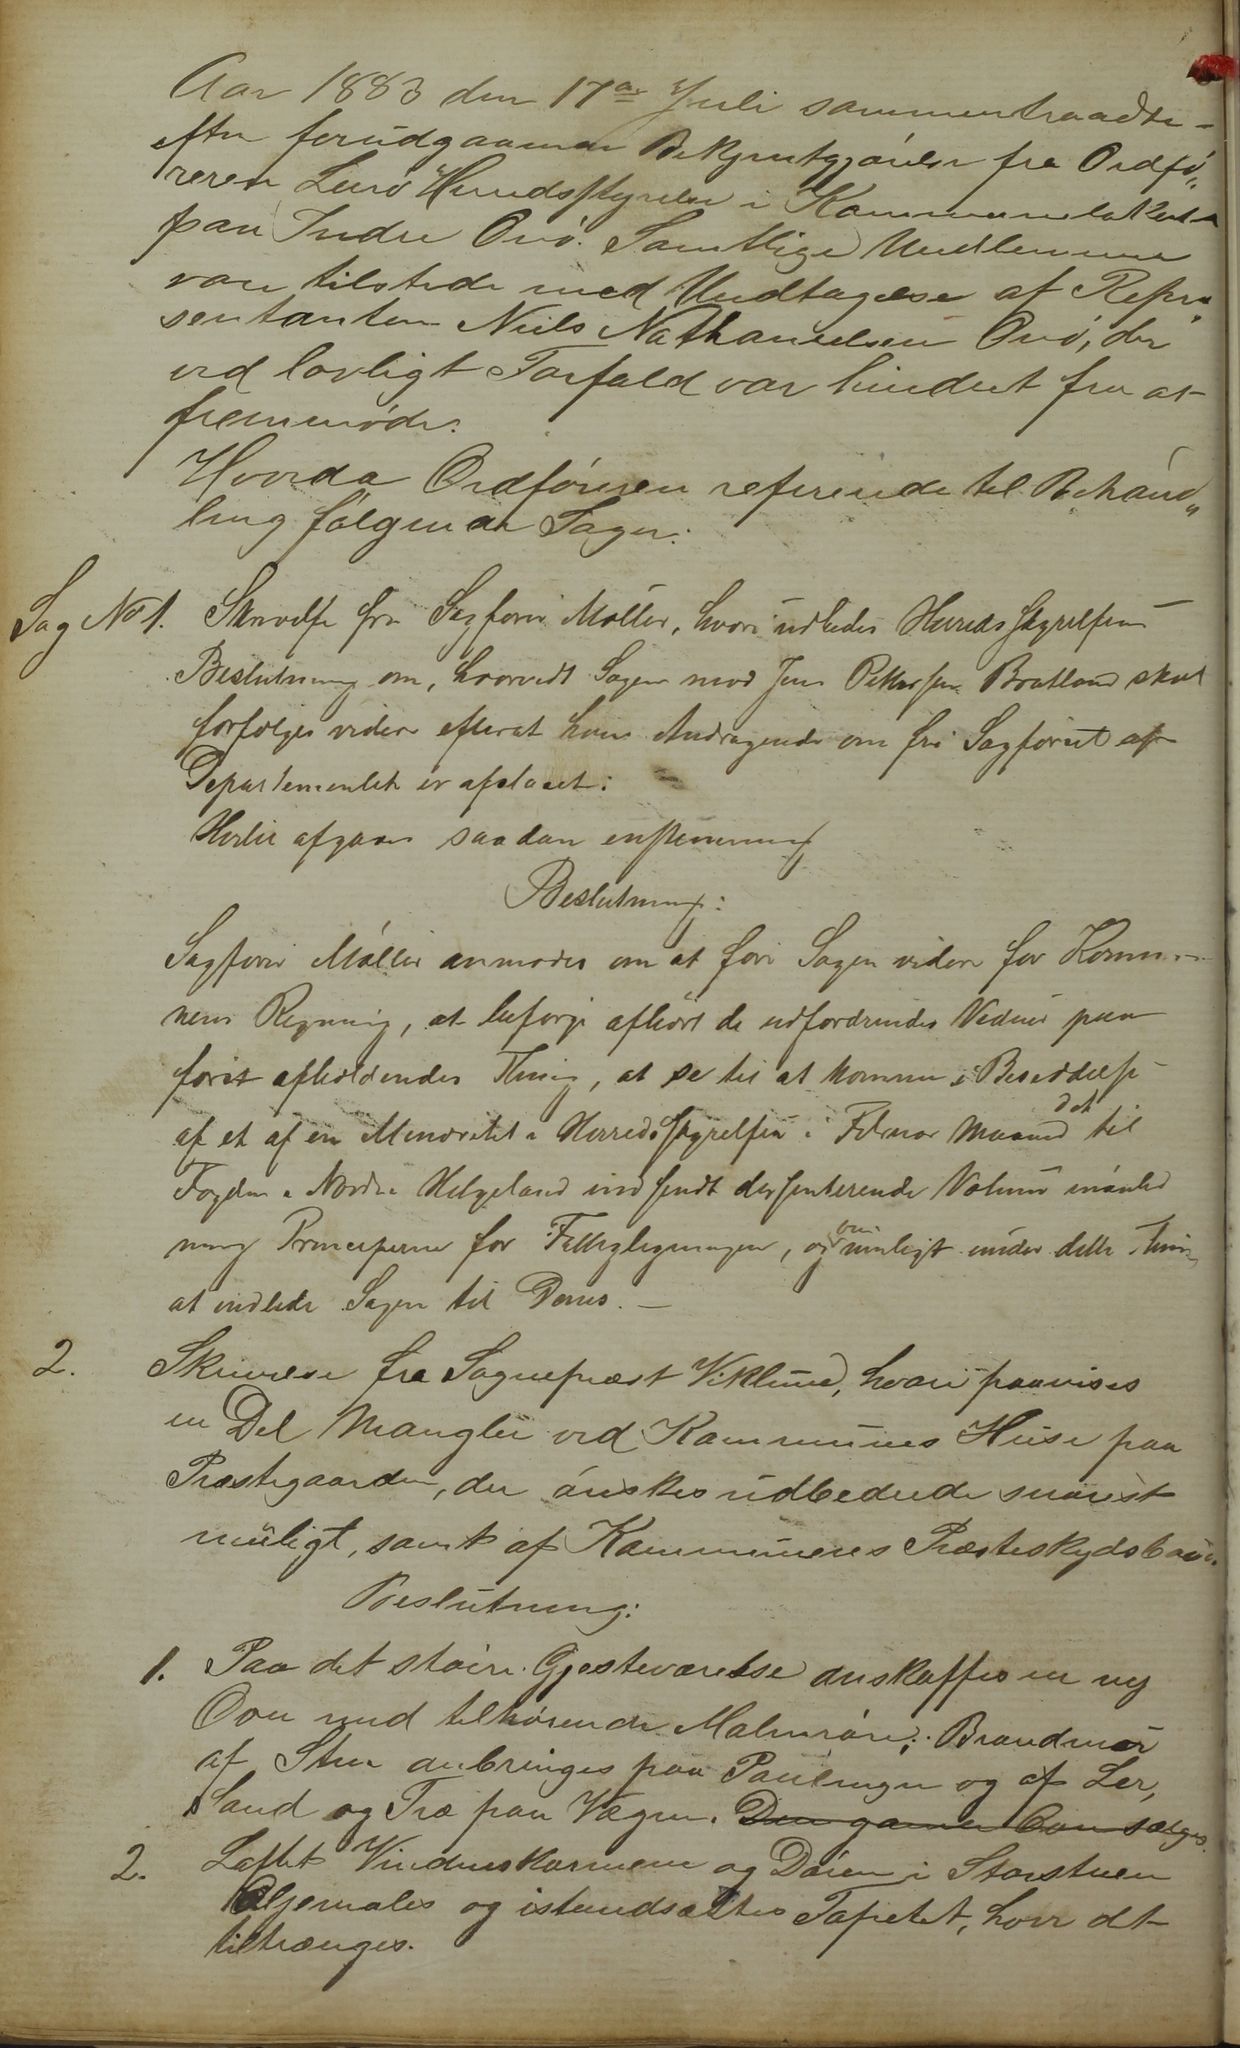 Aar 1883 den 17de Juli sammentraadte
efter forudgaaende Bekjentgjörelse fra Ordfö„
reren Lurö Herredsstyrelse i Kommunelokalet
paa Indre Onö. Samtlige Medlemmer
vare tilstede med Undtagelse af Repræ„
sentanten Niels Nathanielsen Onö, der
ved lovligt Forfald var hindret fra at
fremmöde.
Hvorda Ordföreren refererede til Behand„
ling fölgende Sager:
Sag No 1. Skrivelse fra Sagförer Möller, hvori udbedes Herredsstyrelsens
Beslutning om, hvorvidt Sagen mod Jens Pettersen Bratland skal
forfølges videre efterat hans Andragende om fri Sagförsel af
Departementet er afslaaet:
Herlil afgaves saadan enstemmig
Beslutning:
Sagförer Möller anmodes om at före Sagen videre for Kommu-
nens Regning, at besørge afhört de udfordrende Vidner paa
först afholdendes Thing, at se til at komme i Besiddelse
af et af en Minoritet i Herredsstyrelsen i Februar Maaned det til
Fogden i Nordre Helgeland indsendt dissenterende Votum inanled
ning Principerne for Fattigligningen, og om muligt under dette Thing
at indlede Sagen til Doms. —
2. Skrivelse fra Sognepræst Viklund, hvori paavises
en Del Mangler ved Kommunens Huse paa
Præstegaarden, der önskes udbedrede snarest
muligt, samt af Kommunenes Præsteskydsbaad.
Beslutning:
1. Paa det större Gjesteværelse anskaffes en ny
Ovn med tilhörende Malmrör; Brandmur
af Sten anbringes paa Panelingen og af Ler,
Sand og Træ paa Vægen. Den gamle Ovn sælges.
2. Loftet Vindueskarmene og Dören i Storstuen
Oljemales og istandsættes Tapetet, hvor det
tiltrænges.